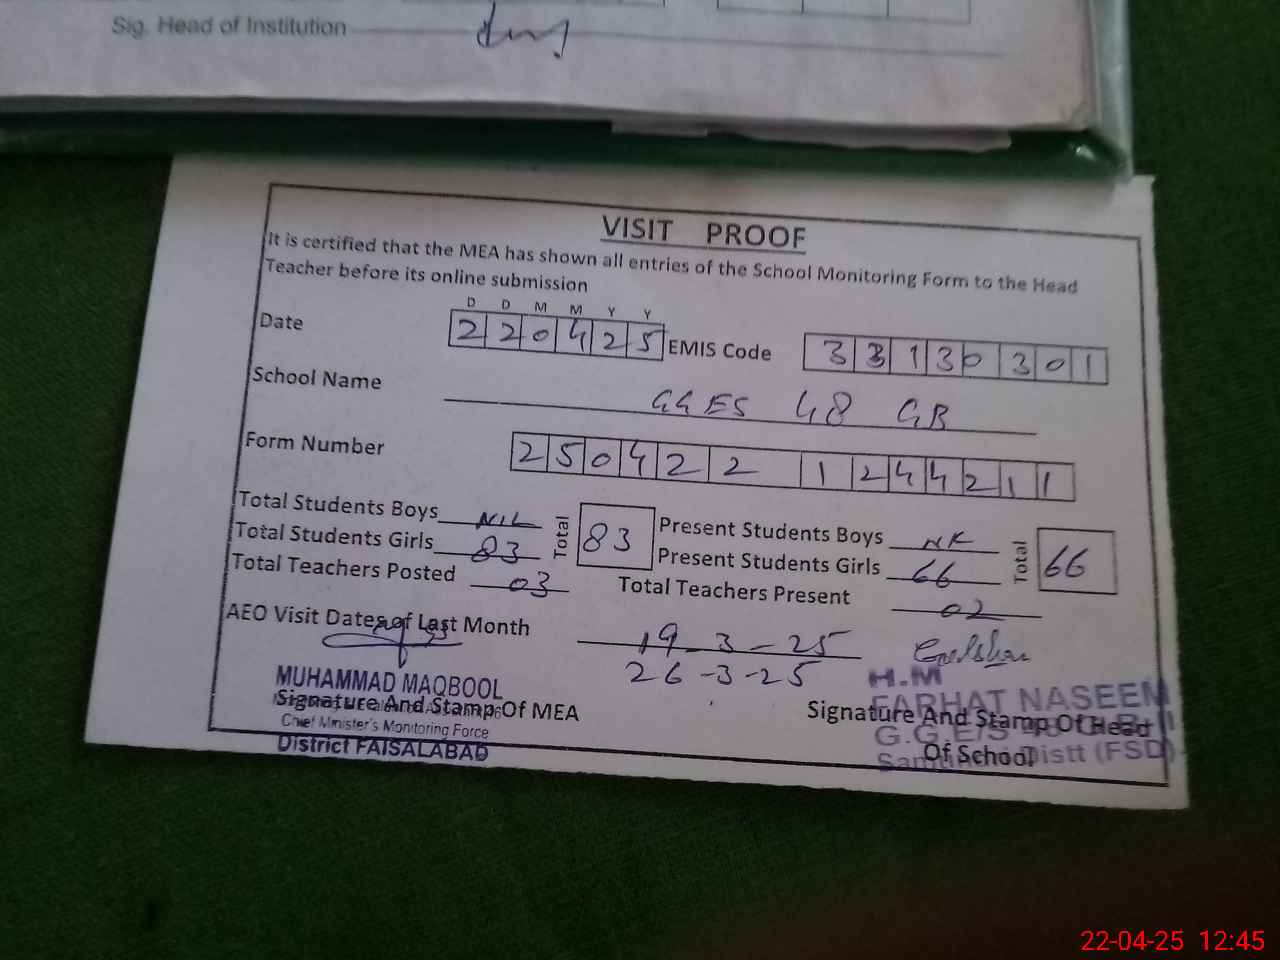 Sig. Head of Institution
VISIT PROOF
It is certified that the MEA has shown all entries of the School Monitoring Form to the Head
Teacher before its online submission
D D M M Y Y
Date 2 2 0 4 2 5 EMIS Code 3 3 1 3 0 3 0 1
School Name GGES 48 GB
Form Number 2 5 0 4 2 2 1 2 4 4 2 1 1
Total Students Boys NIL Total 83 Present Students Boys Total 66
Total Students Girls 83 Present Students Girls 66
Total Teachers Posted 03 Total Teachers Present 02
AEO Visit Dates of Last Month 19-3-25
26-3-25
MUHAMMAD MAQBOOL
Signature And Stamp Of MEA
Chief Minister's Monitoring Force
District FAISALABAD
H.M
FARHAT NASEEM
Signature And Stamp Of Head
G.G.E/S
Of School
Distt (FSD)
22-04-25 12:45